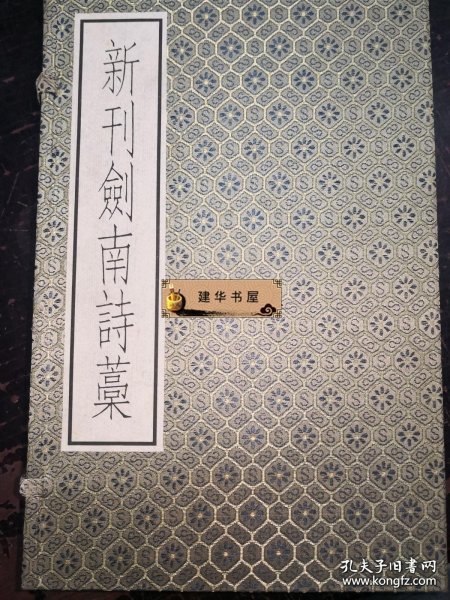 新刊劍南詩藁
建华书屋
孔夫子旧书网
www.kongfz.com